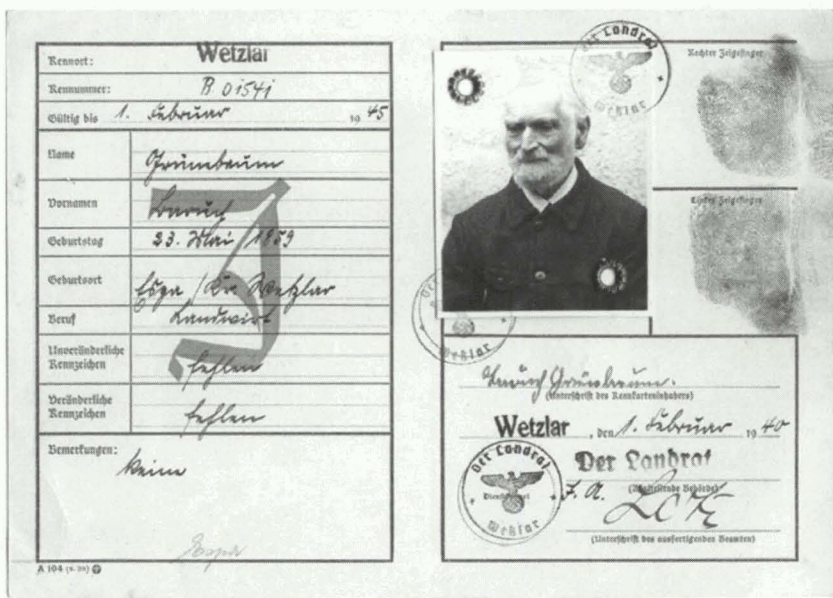 Kennort: Wetzlar
Kennummer: B 01541
Gültig bis 1. Februar 1945
Name Grünebaum
Vornamen Baruch
Geburtstag 23. Mai 1859
Geburtsort Espa / Kr. Wetzlar
Beruf Landwirt
Unveränderliche Kennzeichen fehlen
Veränderliche Kennzeichen fehlen
Bemerkungen: keine
Espa
A 104
J
Der Landrat
Wetzlar
Rechter Zeigefinger
Linker Zeigefinger
Der Landrat
Wetzlar
Baruch Grünebaum.
(Unterschrift des Kennkarteninhabers)
Wetzlar, den 1. Februar 1940
Der Landrat
(Ausstellende Behörde)
J. A.
(Unterschrift des ausfertigenden Beamten)
Der Landrat
Dienststempel
Wetzlar